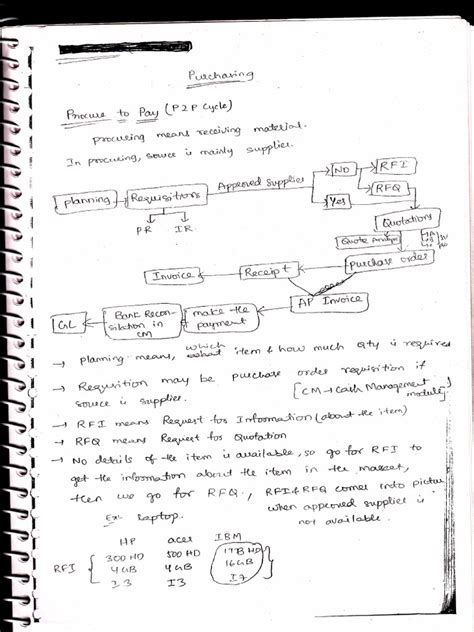 Purchasing
Procure to Pay (P2P Cycle)
procuring means receiving material.
In procuring, source is mainly supplier.
Planning
Requisitions
Approved Supplier
NO
RFI
RFQ
Yes
PR
IR
Quotations
Quote Analysis
Purchase order
Receipt
Invoice
AP Invoice
make the payment
Bank Recon-
ciliation in
CM
GL
→ planning means, which item & how much qty is required
→ Requsition may be purchase order requisition if
source is supplier.
[CM → Cash Management
module]
→ RFI means Request for Information (about the item)
→ RFQ means Request for Quotation
→ No details of the item is available, so go for RFI to
get the information about the item in the market,
then we go for RFQ., RFI & RFQ comes into pictur
when approved supplier is
not available.
Ex:- laptop.
HP acer IBM
RFI { 300 HD 500 HD 1TB HD
4GB 4GB 16GB
I3 I3 I7